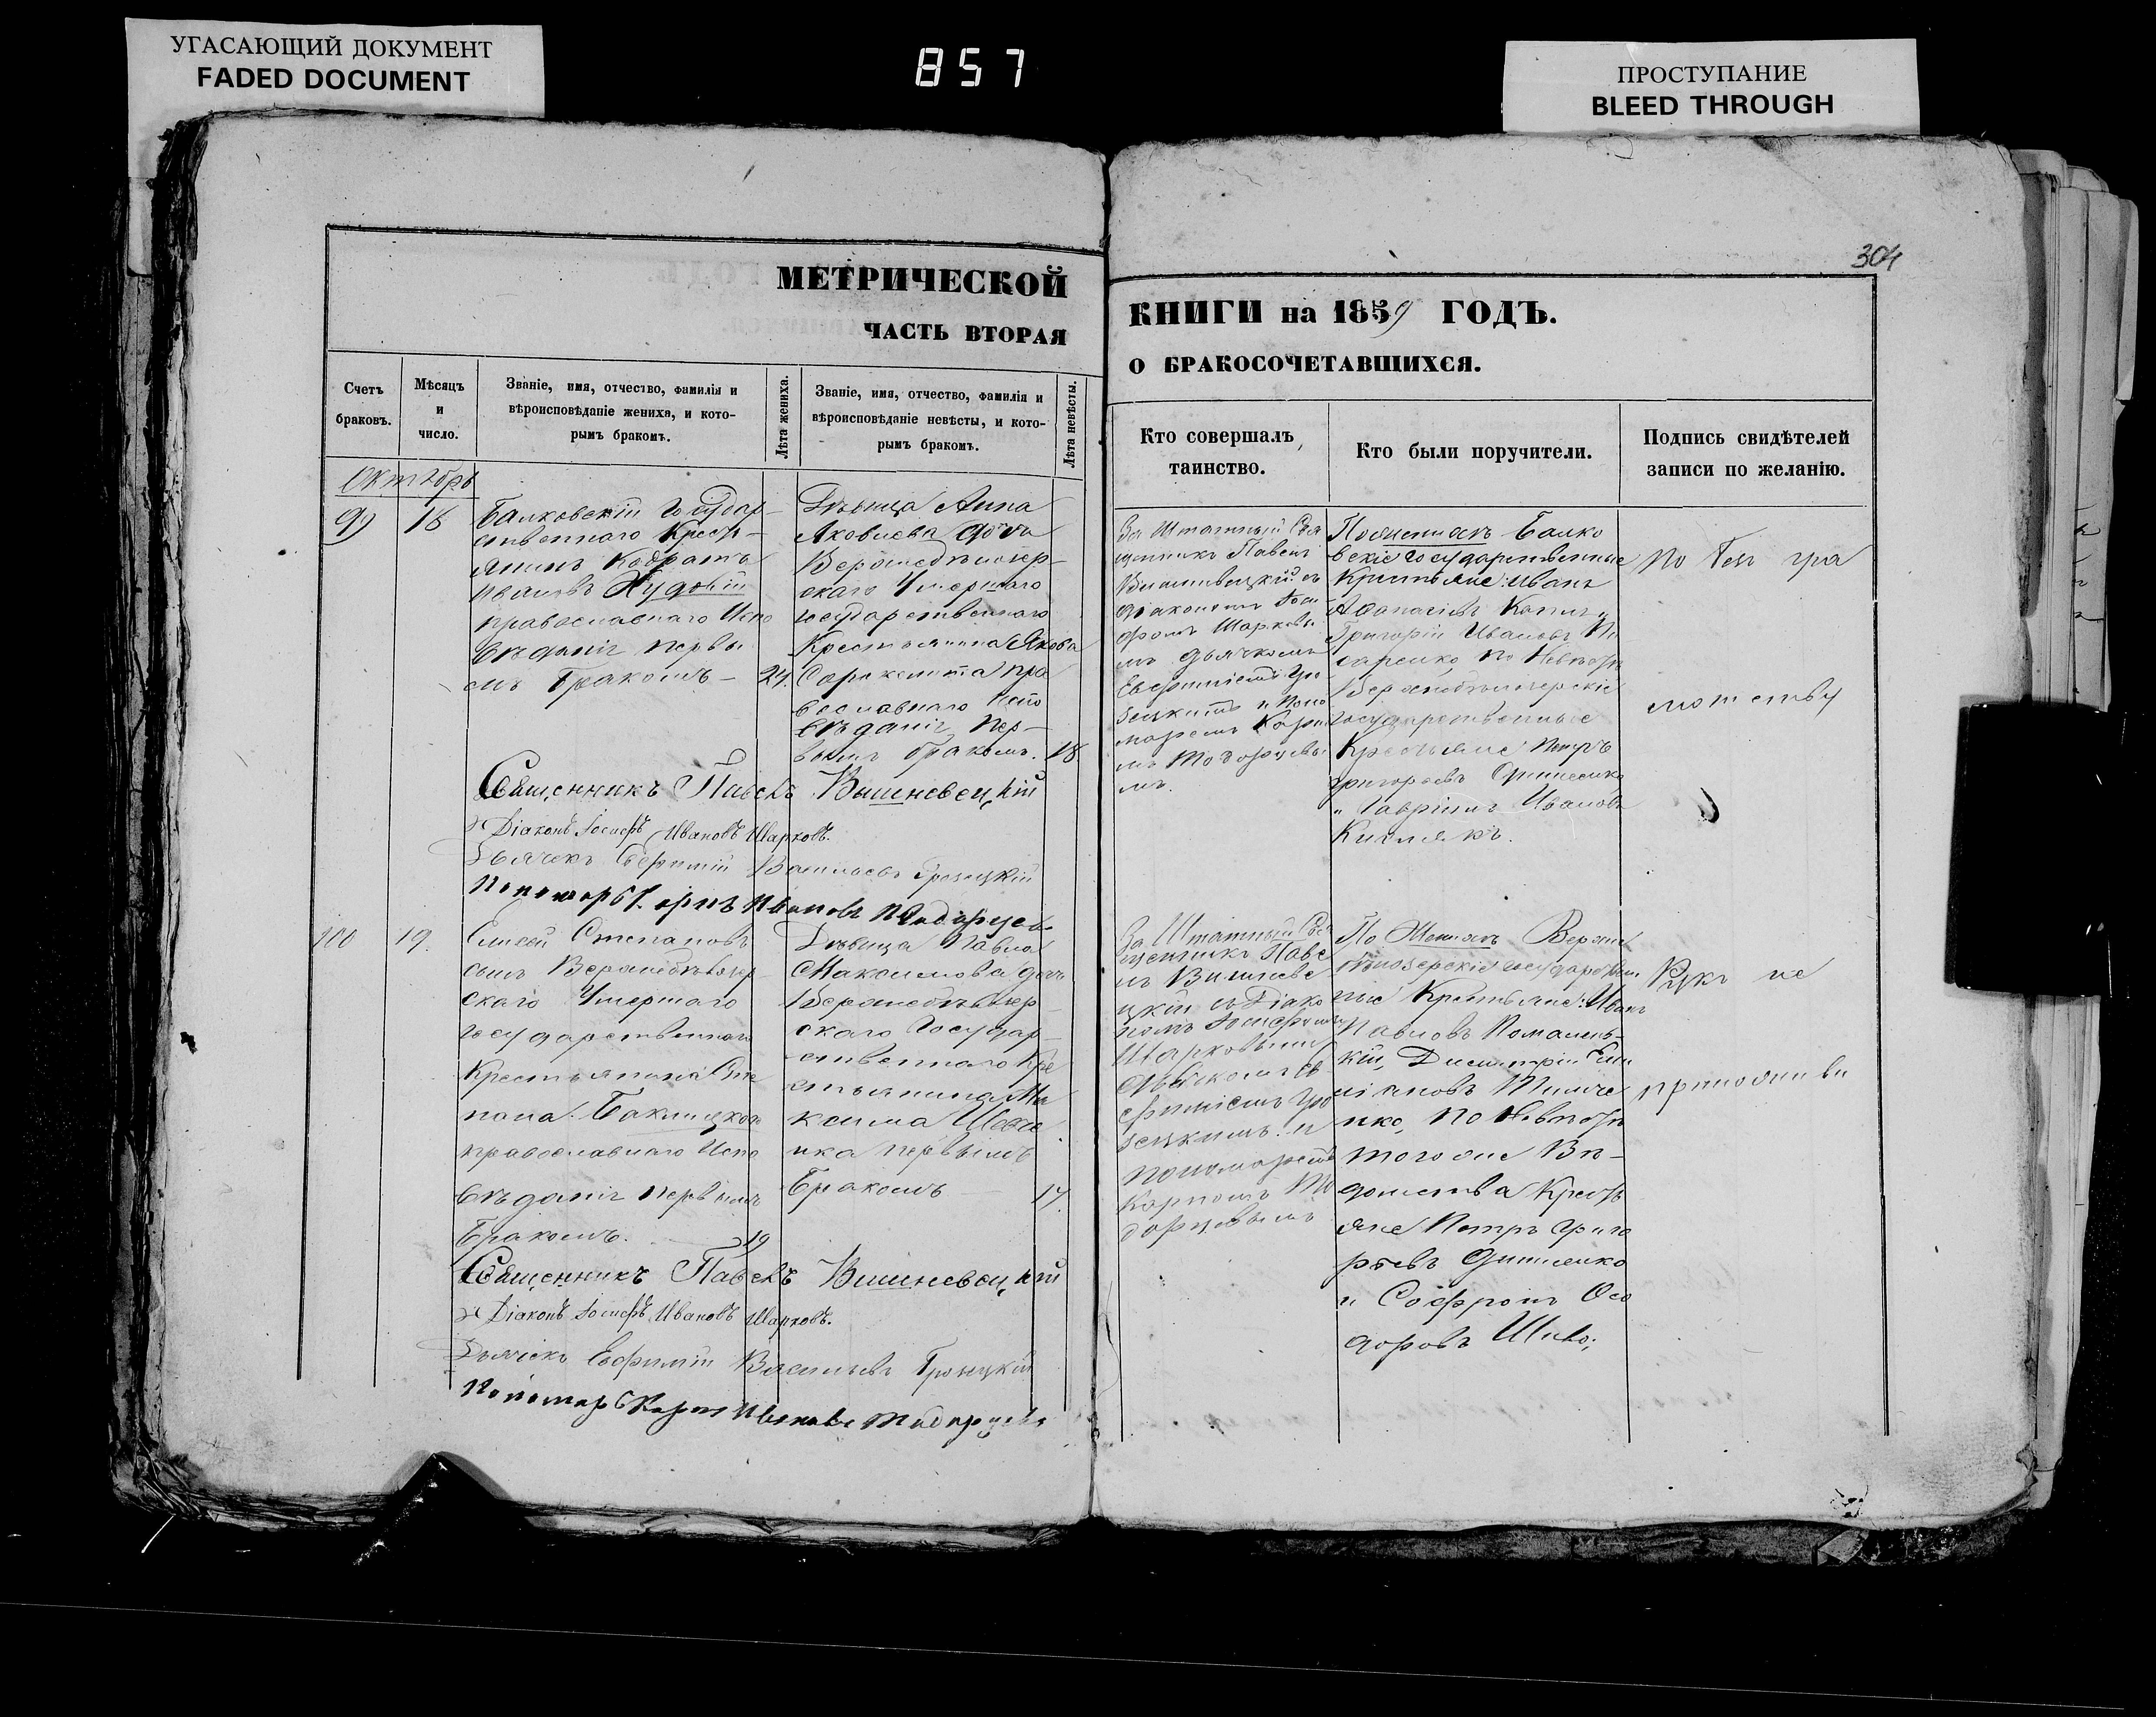 УГАСАЮЩИЙ ДОКУМЕНТ
FADED DOCUMENT
857
ПРОСТУПАНИЕ
BLEED THROUGH
304
МЕТРИЧЕСКОЙ
ЧАСТЬ ВТОРАЯ
КНИГИ на 1859 ГОДЪ.
О БРАКОСОЧЕТАВШИХСЯ.
Счетъ
браковъ.
Мѣсяцъ
и
число.
Званіе, имя, отчество, фамилія и
вѣроисповѣданіе жениха, и кото-
рымъ бракомъ.
Лѣта жениха.
Званіе, имя, отчество, фамилія и
вѣроисповѣданіе невѣсты, и кото-
рымъ бракомъ.
Лѣта невѣсты.
Кто совершалъ
таинство.
Кто были поручители.
Подпись свидѣтелей
записи по желанію.
Октябрь
99
18
Балковскій Государ-
ственнаго Крест-
янинъ Кодратъ
Ивановъ Худобій
православнаго Испо
вѣданія первы
мъ бракомъ —
24.
Дѣвица Анна
Яковлева дочь
умершаго
государственнаго
Крестьянина Якова
пра
вославнаго Испо
вѣданія пер-
вымъ бракомъ.
18
За Штатный Свя
щенникъ Павелъ
Вишневецкій съ
діакономъ Іоси
фомъ Шарковы
мъ дьячкомъ
Евфиміемъ Гро
зецкимъ и Поно
маремъ Карпо
мъ Тодорцевы
мъ.
По Женихѣ Балко
вскіе государственные
Крестьяне: Иванъ
Григорій Ивановъ Пи
саренко по Невѣстѣ
государственные
Крестьяне Петръ
Григорьевъ
и Гавріилъ Ивановъ
По безъ гра
мотству
Священникъ Павелъ Вишневецкій
Діаконъ Іосифъ Ивановъ Шарковъ.
Дьячекъ Евфимій Васильевъ Грозецкій
Пономарь Карпъ Ивановъ Тодорцевъ
100
19.
Елисей Степановъ
сынъ
скаго Умершаго
государственнаго
Крестьянина Сте
пана
православнаго Испо
вѣданія первымъ
бракомъ.
19
Дѣвица Павла
Максимова дочь
скаго Государ-
ственнаго Кре
стьянина Ма
ксима Шевче
нка первымъ
бракомъ
17.
За Штатный Свя
щенникъ Паве
лъ Вишневе
цкій съ Діако
номъ Іосифомъ
Шарковымъ
дьячкомъ Ев
фиміемъ Гро
зецкимъ и
пономаремъ
Карпомъ То
дорцевымъ
По Женихѣ
Крестьяне: Иванъ
Павловъ
кій, Димитрій Еми
ліановъ Тимче
нко, по Невѣстѣ
того же Вѣ-
домства Крестъ
яне Петръ Григо
рьевъ
и Софронъ Ѳео
доровъ
Рукъ не
приложили
Священникъ Павелъ Вишневецкій
Діаконъ Іосифъ Ивановъ Шарковъ.
Дьячекъ Евфимій Васильевъ Грозецкій
Пономарь Карпъ Ивановъ Тодорцевъ